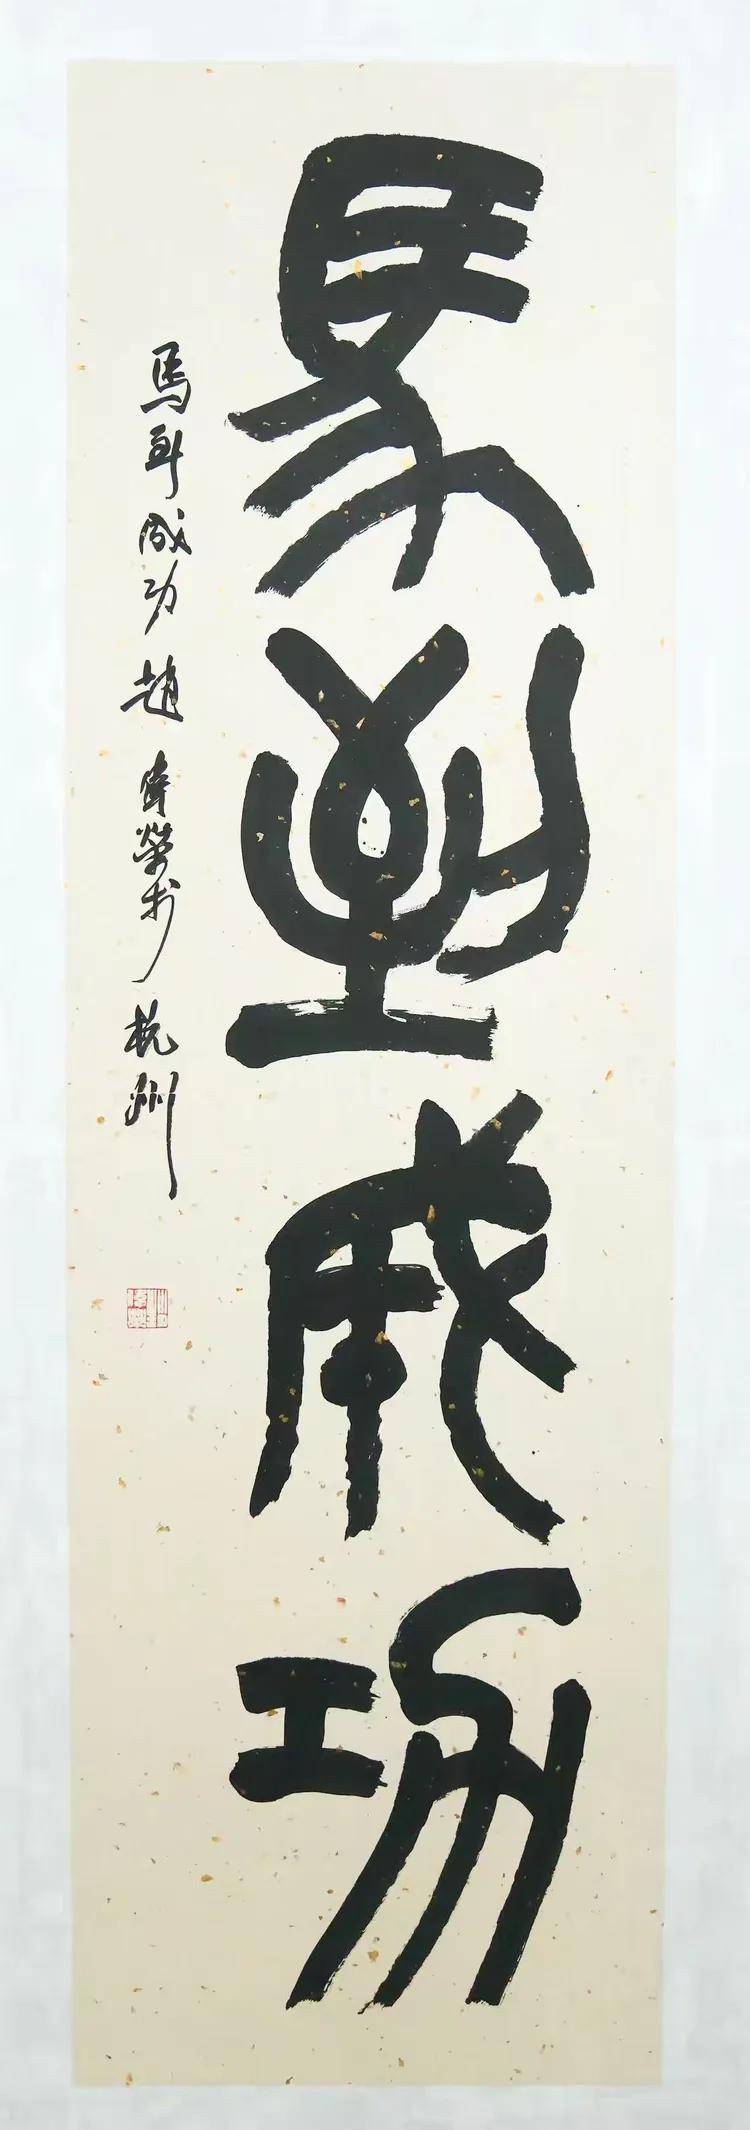 馬到成功
馬到成功 趙偉榮书 杭州